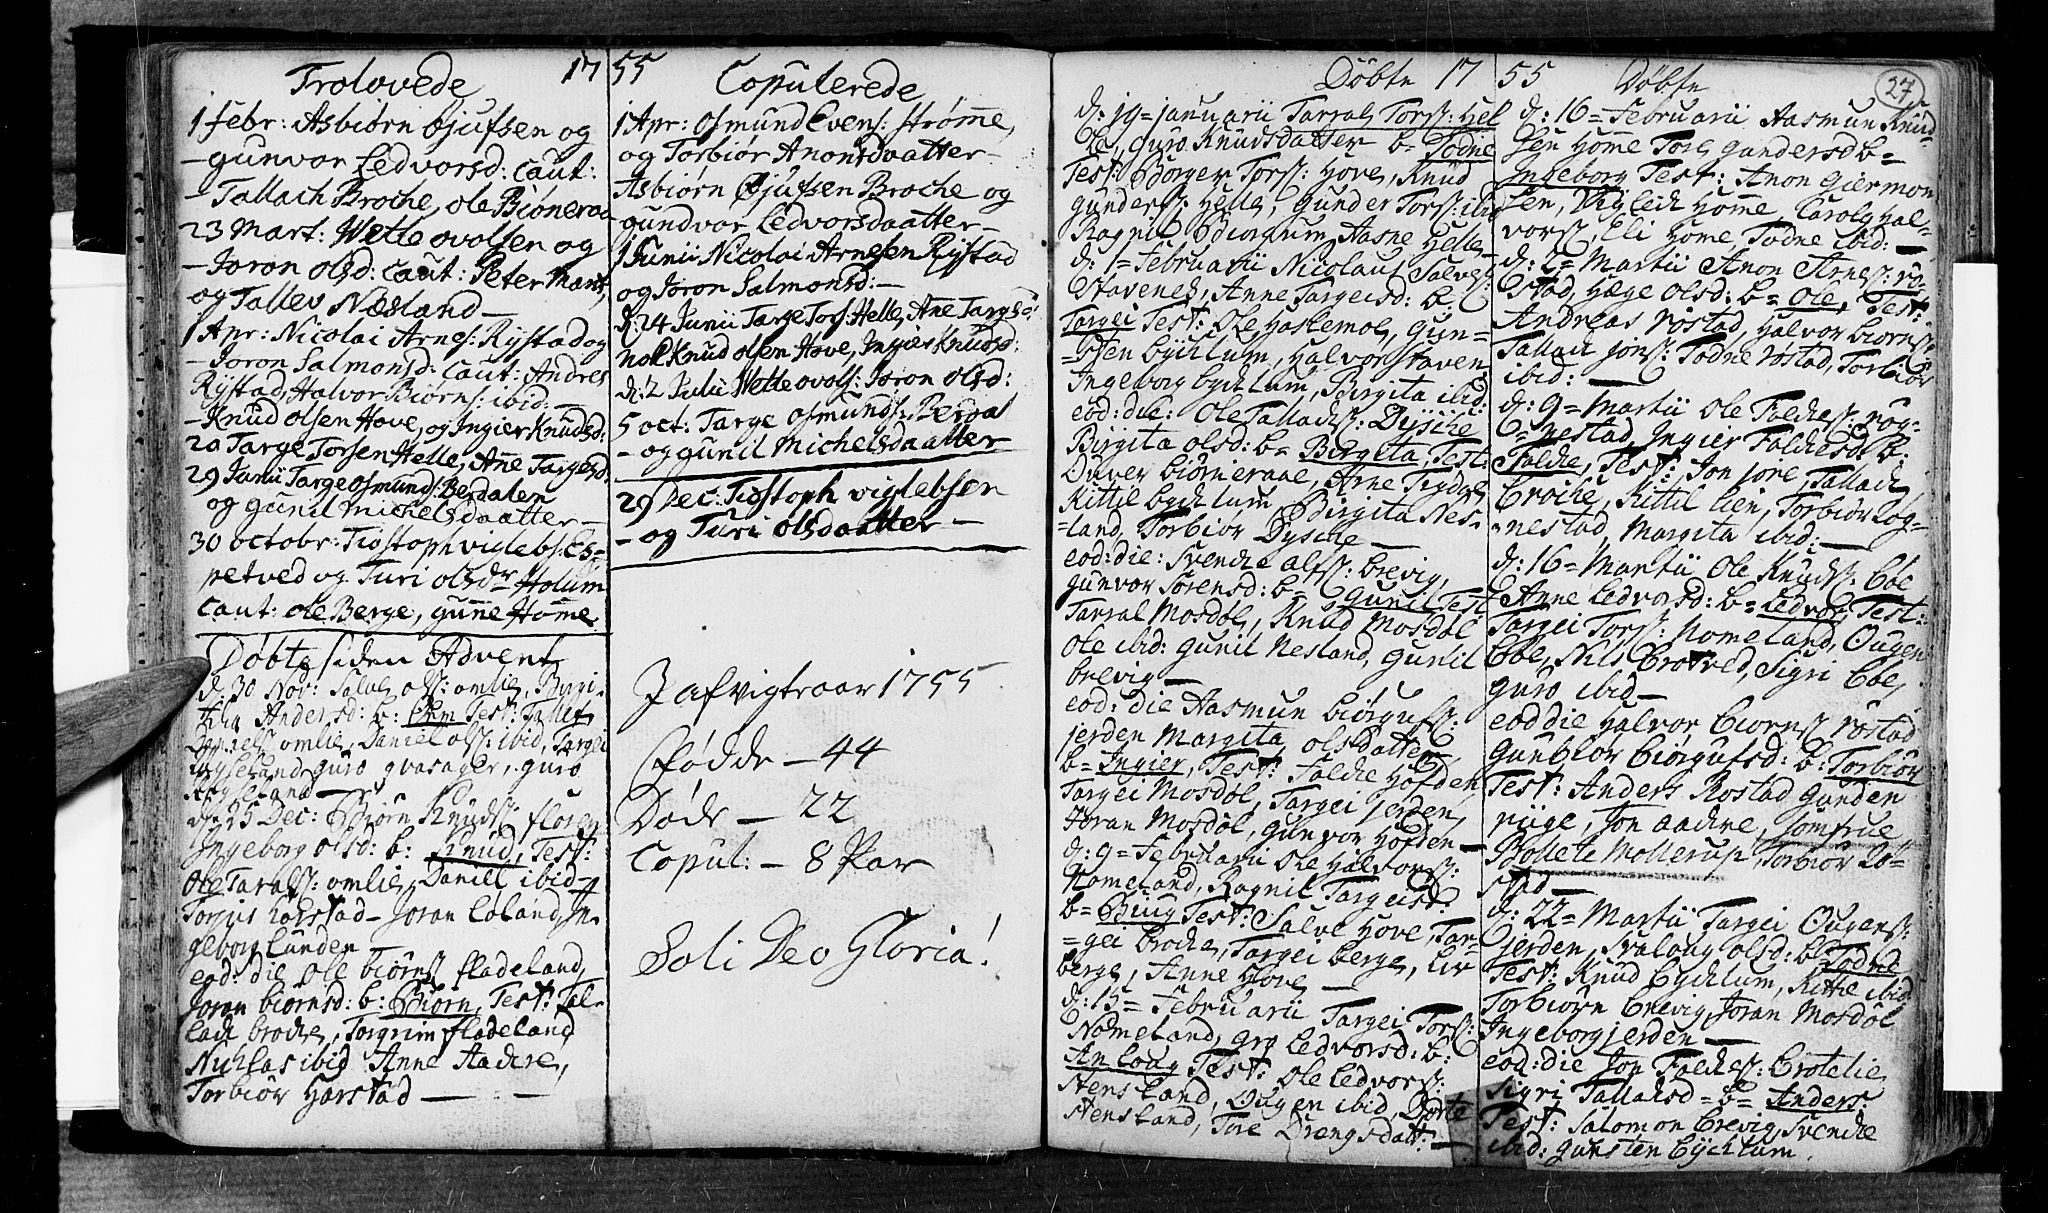 Trolovede 17
1 Febr: Asbiørn Ojufsen og
- gunvor Ledvorsd: Caut:
- Tallach Broche, ole Biøneraa
23 Mart: Wette ovolsen og
- Joron olsd: Caut: Peter
og Tallev Næsland -
1 Apr: Nicolai Arnes: Rÿstad og
- Joron Salmonsd: Caut: Andres
Rÿstad, Halvor Biørns: ibid: -
- Knud olsen Hove, og Ingier Knudsd:
20 Targe Torsen Helle, Ane Targesd:
29 Junii Targe osmunds: Berdalen
og gunil Michelsdaatter -
30 octobr: Tiostoph viglebs: Es-
petved og Turi olsdr Holum
Caut: ole Berge, gune Homme
Døbte siden Advent
d. 30 Nov: Salve ols: omlie, Birgi-
tha Andersd: b: Test: Tallef
Daniels omlie, Daniel ols: ibid, Targei
Rygeland guro qvasager, guro
Rygeland -
d: 25 Dec: Biørn Knuds: floren
Ingeborg olsd: b: Knud, Test:
Ole Taralds: omlie, Daniel ibid -
Torjus Harstad - Joran Løland, In-
geborg Lunden -
eod: die ole biørns fladeland,
Joran biørnsd: b: Biørn, Test: Tal-
lach brocke, Torgrim fladeland
Nichlas ibid Anne Aackre,
Torbiør Harstad -
55 Copulerede
1 Apr: Osmund Evens: strøme,
og Torbiør Anonsdaatter -
Asbiørn Ojufsen Broche og
gundvor Ledvorsdaatter -
1 Junii Nicolai Arnesen Rÿstad
og Joron Salmonsd: -
d: 24 Junii Targe Tors: Helle, Ane Targsd:
nok Knud olsen Hove, Ingier Knudsd:
d: 2 Julii Wette ovols: Joron olsd:
5 oct: Targe osmunds: Berdal
- og gunil Michelsdaatter -
29 Dec: Tiostoph viglebsen
- og Turi olsdaatter -
I afvigte aar 1755
Fødde - 44
Døde - 22
Copul: - 8 Par
Soli Deo Gloria!
Døbte 17
d: 19 = januarii Tarral Tors: Hel
le, guro Knudsdatter b = Todne
Test: Borger Tors: Hove, Knud
gunders: Helle, gunder Tors: ibid
Ragnil Aasne Helle
d: 1 = Februarii Nicolaus Salves:
Stavenes, Anne Targeisd: b:
Targei Test: Ole Haslemoe, Gun-
sten bycklum, Halvor staven
Ingeborg bycklum, Birgita ibid:
eod: die: Ole Tallachs: Dysche
Birgita olsd: b = Birgita, Test:
Onver biørneraae, Arne
Kittil bycklum, Birgita Nes-
=land, Torbiør Dysche -
eod: die: Svencke alfs: brevig,
gunvor Sørensd: b = Gunil Test
Tarral Mosdøl, Knud Mosdøl
Ole ibid: Gunil Nesland, Gunil
brevig -
eod: die Aasmun biørgufs:
jerden Margita olsdatter
b = Ingier, Test: Folcke Hofden
Targei Mosdøl, Targei jerden,
Joran Mosdøl, gunvor Hofden -
d: 9 = Februarii Ole Halvors:
Nomeland, Ragnil Targeisd:
b = Test: Salve Hove, Tar-
=gei brocke, Targei berge, Liv
berge, Anne Hove -
d: 15 = Februarii Targei Tors:
Nomeland, gro Ledvorsd: b:
Anlaug Test: Ole Ledvors:
Stensland, Ougen ibid, Dorte
stensland, Tore Drengsdatt: -
55 Døbte 27
d: 16 = Februarii Aasmun Knud-
sen Home Tore gundersd b =
Ingeborg Test: Anon giermon
sen, Home, Caroly Hal-
vors, Eli Home, Todne ibid: -
d: 2 = Martii Anon Arnes: rø-
stad, Hæge Olsd: b = Ole, Test:
Andreas røstad, Halvor biørns:
Tallack jons: Todne røstad, Torbiør
ibid: -
d: 9 = Martii Ole Folckes: Røg-
=nestad, Ingier Folckesd b:
Folcke, Test: Jon jore, Tallack
brocke, Kittil Lien, Torbiør Rog-
=nestad, Margita ibid: -
d: 16 = Martii Ole Knuds: Ose
Anne Ledvorsd: b = Ledvor, Test:
Targei Tors: Nomeland, Ougen
Ose, Nils Brotved, Sigri Ose,
guro ibid -
eod die Halvor biorns røstad
Gunbior biørgufsd: b: Torbiør
Test: Anders Rostad gunden
riige, Jon aackre, Jomfrue
Bollete Mollerup, Torbiør Rø-
stad -
d: 22 = Martii Targei Ougens:
jerden, Svalaug olsd: b: Todne
Test: Knud bycklum, Kittil ibid:
Torbiørn brevig, Joran Mosdøl
Ingeborg jerden -
eod: die Jon Folckes: brotelie
Sigri Tallaksd = b = Anders:
Test: Salomon brevig, Svencke
ibid: Gunsten bycklum.